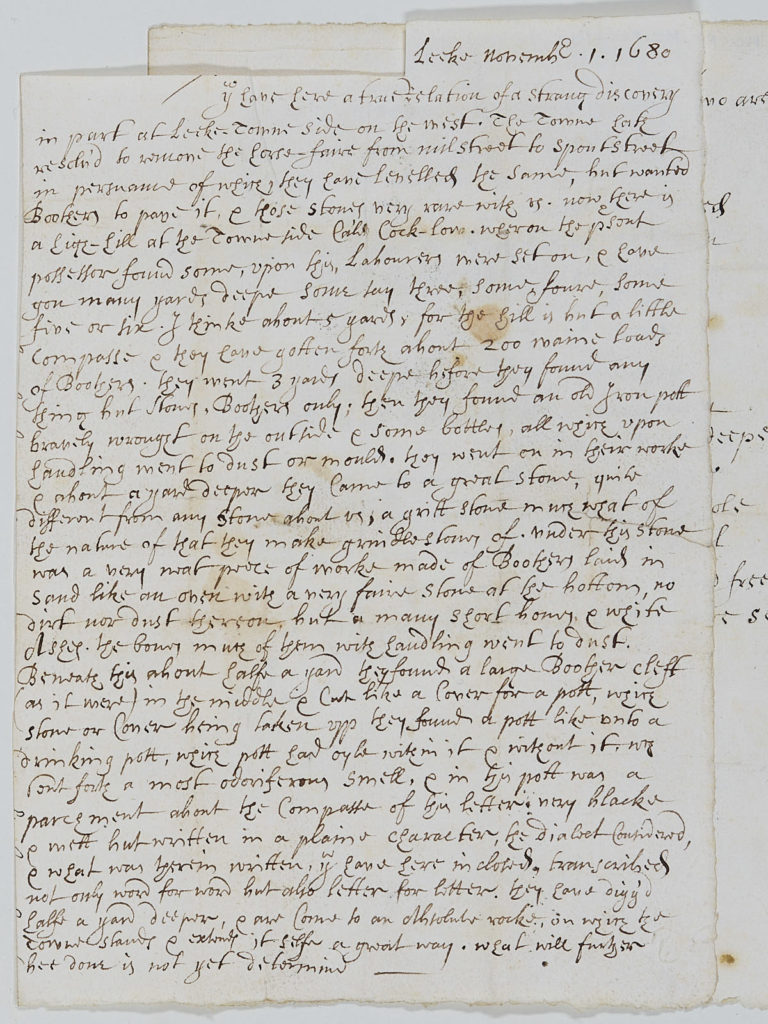 Leeke Novembr. 1. 1680
yu have here a true relation of a Strang discovery
in part at Leeke Towne side on the west. The Towne hath
resolv'd to remove the horse-faire from milstreet to spoutstreet
in persuance of which they have levelled the same, but wanted
Boothers to pave it, & those stones very rare with us. now there is
a high-hill at the Towne side Calld Cock-low. wheron the psent
possessor found some, upon this, Labourers were set on, & have
gon many yards deepe some say three, some foure, some
five or six. I thinke about 5 yards, for the hill is but a little
Compasse & they have gotten forth about 200 waine loads
of Boothers. they went 3 yards deepe before they found any
thing but stones, Boothers only; then they found an old Iron pott
bravely wrought on the outside & some bottles, all which upon
handling went to dust or mould. they went on in their worke
& about a yard deeper they Came to a great stone, quite
different from any stone about us, a gritt stone much what of
the nature of that they make grindlestones of. under this stone
was a very neat peece of worke made of Boothers laid in
sand like an oven with a very faire stone at the bottom, no
dirt nor dust thereon, but a many short bones & white
Ashes. the bones much of them with handling went to dust.
Beneath this about halfe a yard they found a large Boother cleft
(as it were) in the middle & Cut like a Cover for a pott, which
stone or Cover being taken upp they found a pott like unto a
drinking pott, which pott had oyle within it & without it, wch
sent forth a most odoriferous smell, & in this pott was a
parchment about the Compasse of this letter, very blacke
& wett but written in a plaine Character, the dialect Considered,
& what was therein written, yu have here inclosed, transcribed
not only word for word but also letter for letter. they have digg'd
halfe a yard deeper, & are Come to an Absolute rocke, on which the
Towne stands & extends it selfe a great way. what will further
bee done is not yet determind